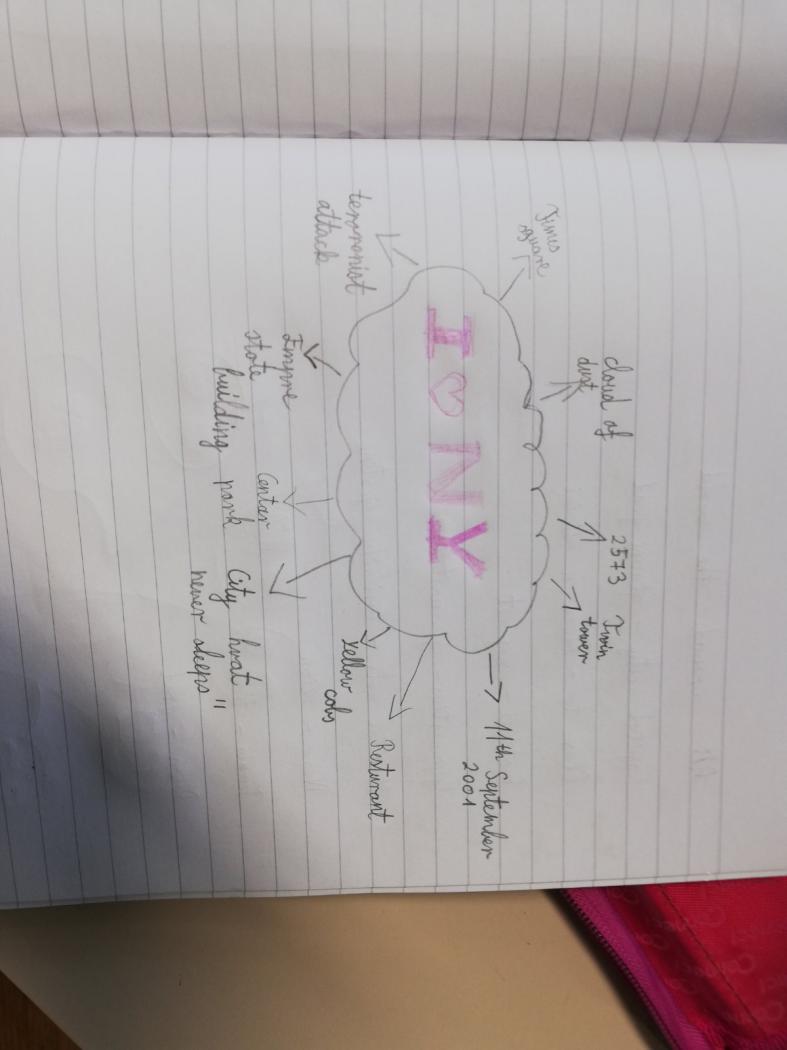 Times
square
cloud of
dust
2573
Twin
tower
11th September
2001
I ♡ NY
terrorist
attack
Empire
state
building
Centar
park
City hwat
never sleeps"
Yellow
cabs
Resturant